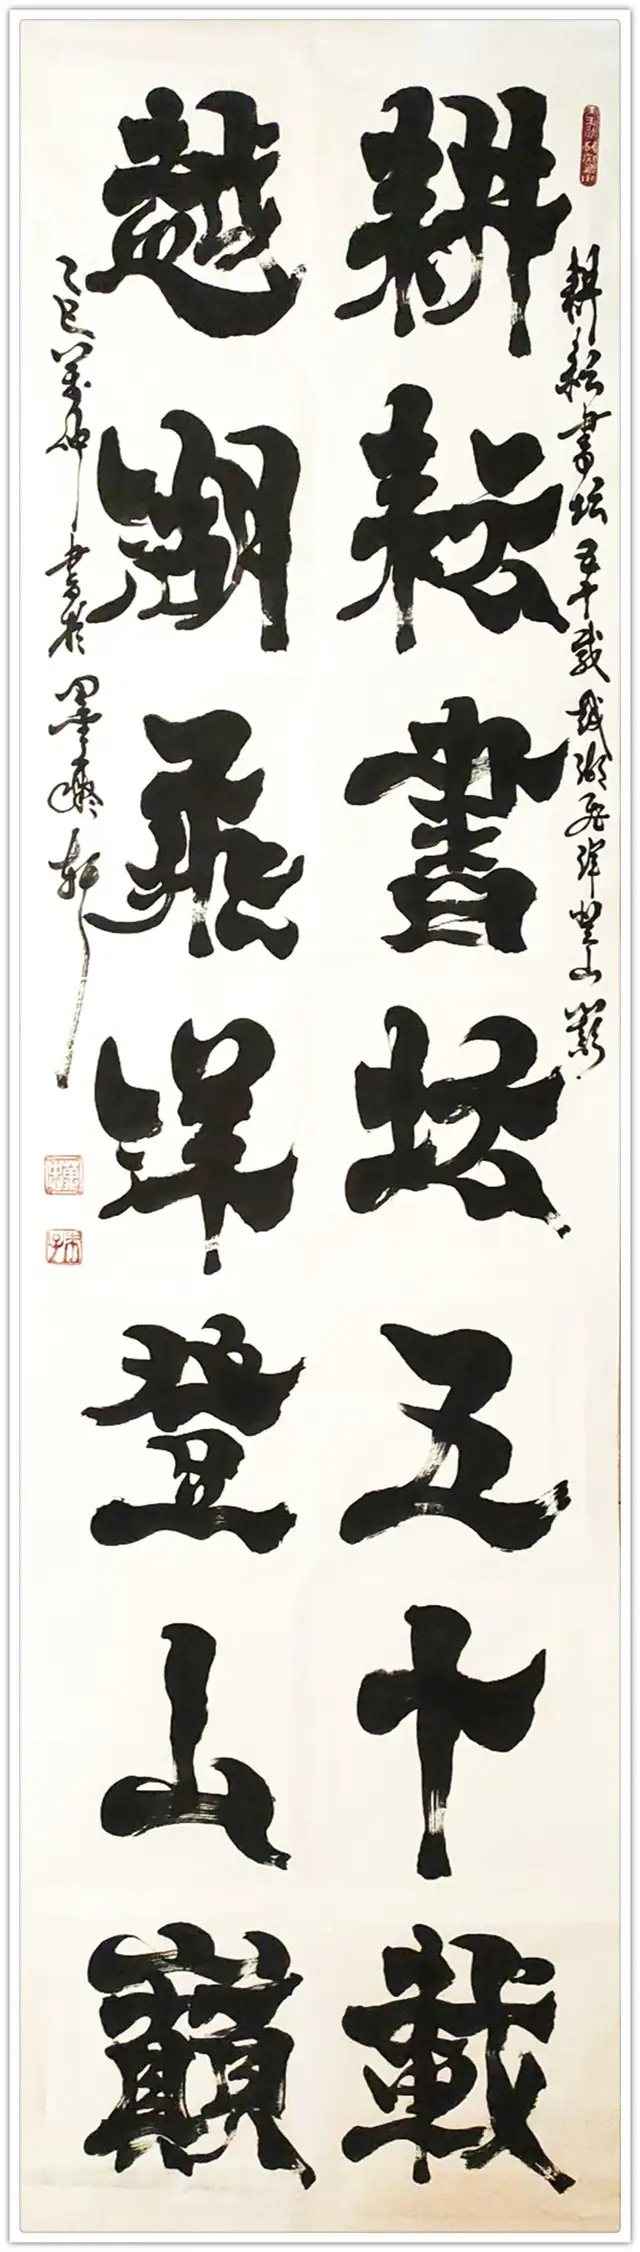 耕耘書坛五十載越湖飛洋登山巔
耕耘書坛五十載
越湖飛洋登山巔
乙巳萬仲書於墨軒